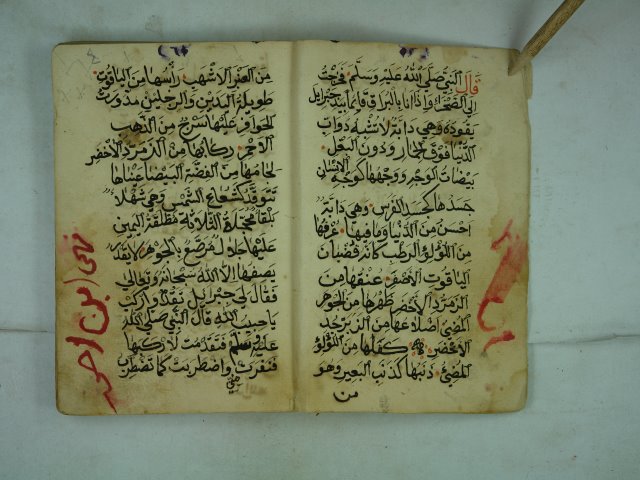 قال النبي صلى الله عليه وسلم فخرجت
الى الصحن واذا انا بالبراق قائم بيد جبرائيل
يقوده وهي دابة لا تشبه دواب
الدنيا فوق الحمار ودون البغل
بيضات الوجه ووجهها كوجه الانسان
جسدها كجسد الفرس وهي دابة
احسن من الدنيا وما فيها عرفها
من اللؤلؤ الرطب كانه قضبان
الياقوت الاصفر عنقها من
الزمرد الاخضر ظهرها من الجوهر
المضئ اضلاعها من الزبرجد
الاخضر كفلها من اللؤلؤ
المضئ ذنبها كذنب البعير وهو
من
من العنبر الاشهب راسها من الياقوت
طويلة اليدين والرجلين مدورت
الحوافر عليها سرج من الذهب
الاحمر ركابها من الزمرد الاخضر
لجامها من الفضة البيضا عيناها
تتوقد كشعاع الشمس وهي شهلا
بلقا محجلة الثلاثة مطلقة اليمين
عليها جل مرصع بالجوهر لا يقدر
يصفها الا الله سبحانه وتعالى
فقال لي جبرايل تقدم واركب
يا حبيب الله قال النبي صلى الله
عليه وسلم فتقدمت لاركبها
فنفرت واضطربت كما تضطرب